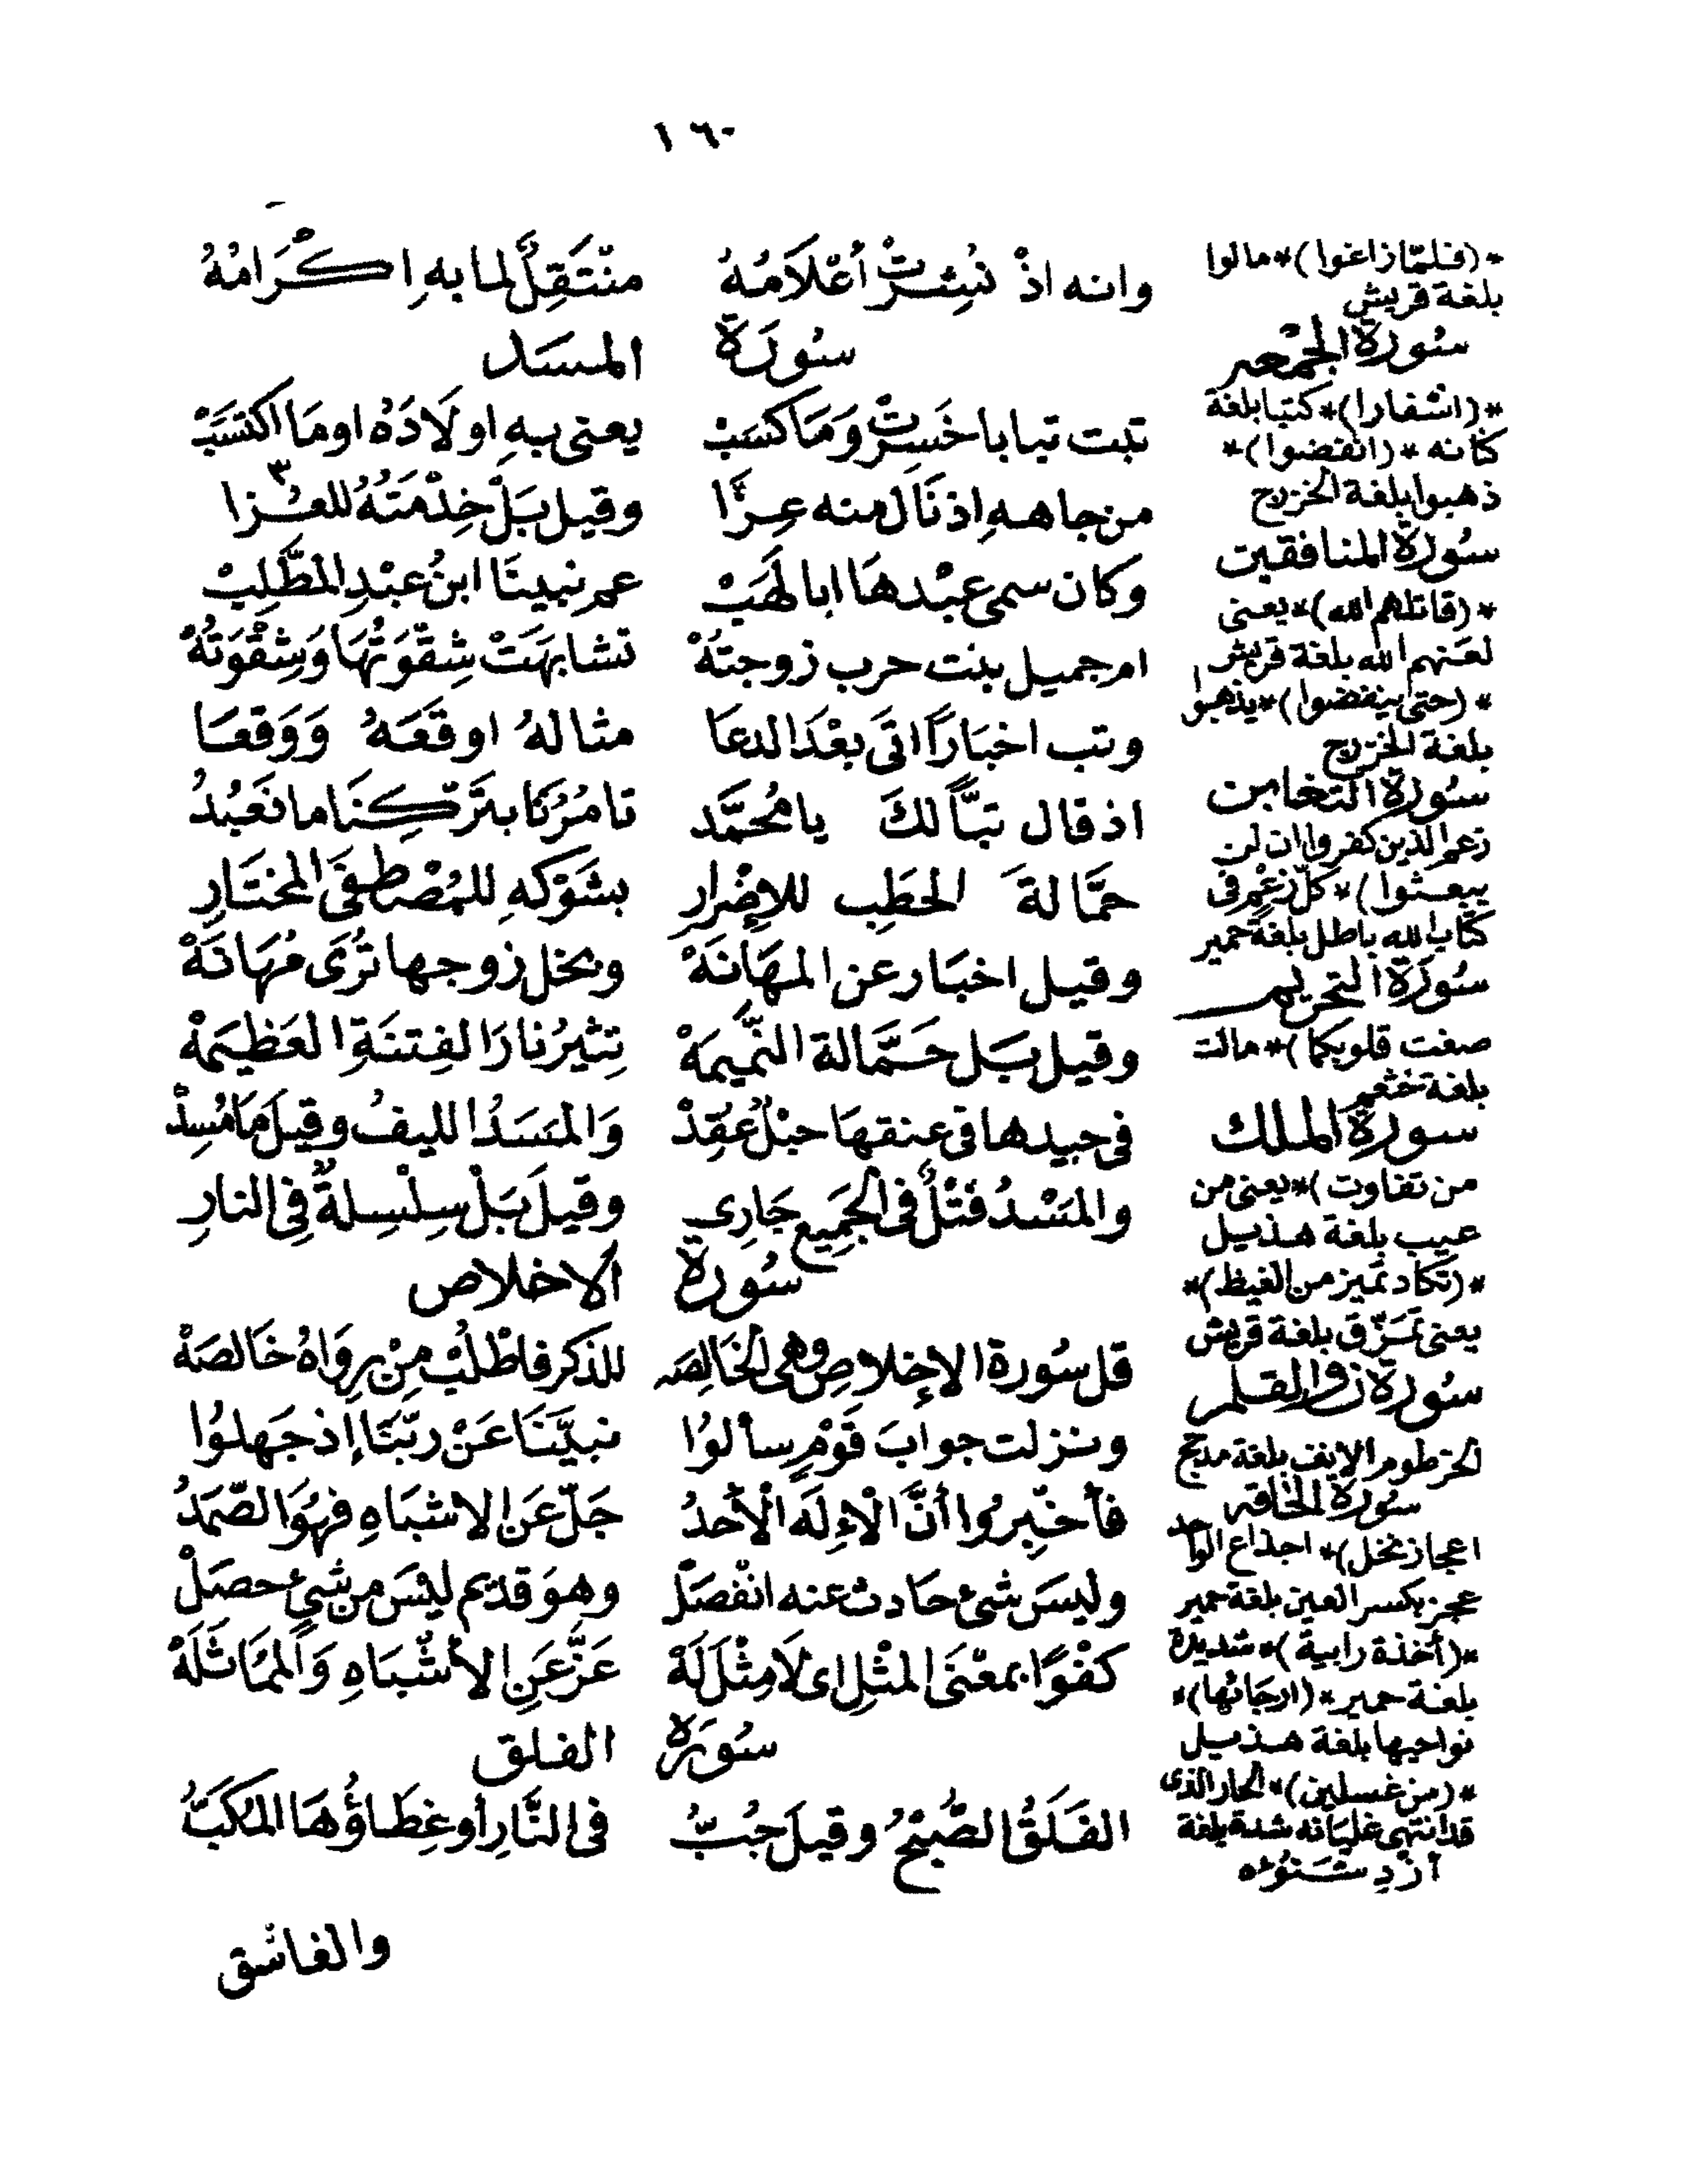 ١٦٠
وانه اذْ نُشِرَتْ أعْلَامُهُ منْتَقِلٌ لما به اِكْرَامُهُ
سُورَة المسَد
تبت تبابا خَسِرتْ وَمَا كسَبْ يعنى بهِ اولَادَهُ اومَا اكتسَبْ
من جاههِ اذ نَال منه عِزَّا وقيل بَلْ خِدْمَتَهُ للعُزا
وكان سمى عبْدهَا ابا لهَبْ عم نبينَا ابنُ عبْدِ المطَّلِبْ
ام جميل بنت حرب زوجتهْ تشابهَتْ شِقْوَتُهَا وَشِقْوَتُهْ
وتب اخبَارًا اتَى بعْدَ الدعَا مثالهُ اوقَعَهُ وَوَقعَا
اذ قال تبًّا لكَ يا مُحمَّد تامُرُنَا بتَرْكِنَا ما نَعَبُدُ
حمَّالةَ الحطَبِ للإضْرارِ بشَوْكهِ للمُصْطفَى المختَارِ
وقيل اخبَار عن المهَانَهْ وبخل زوجها تُرَى مُهَانَهْ
وقيل بَل حَمَّالة النَّميمَهْ تِثيرُ نارَ الفِتنَةِ العَظيمَهْ
فى جيدها فى عنقهَا حبْلٌ عُقِدْ وَالمَسَدُ الليفُ وقيلَ مَا مُسِدْ
والمَسْدُ فَتْلٌ فى الجَمِيعِ جَارِي وقيلَ بَلْ سِلْسِلةٌ فِى النارِ
سُورة الاخلاص
قل سُورة الإخلاصِ وهى الخَالِصَه للذكر فاطْلُبْ مِنْ رِوَاهُ خَالصَهْ
ونزلت جوابَ قَوْمٍ سألوُا نبيَّنَا عَنْ ربّنَا إذ جَهلوُا
فأخبِرُوا أنَّ الْإِلَهَ الْأحدُ جَلّ عَن الاشبَاهِ فهُوَ الصّمَدُ
وليسَ شئ حَادث عنه انْفصَلْ وهوَ قديم ليْسَ من شئٍ حصَلْ
كفْوًا بمعْنَى المثْلِ اى لَا مِثْلَ لَهْ عَزَّ عَنِ الأشْبَاهِ وَالممَاثَلَهْ
سُورَة الفلق
الفَلَقُ الصُّبْحُ وقيلَ جُبُّ فى النَّارِ أو غِطَاؤُهَا المكَبُّ
والغاسق
*(فلمّا زاغوا)* مالوا
بلغة قريش
سُورة الجمُعه
*(اسفارا)* كتبا بلغة
كنانه *(انفضوا)*
ذهبوا بلغة الخزرج
سُورة المنافقين
*(قاتلهم الله)* يعنى
لعنهم الله بلغة قريش
*(حتى ينفضوا)* يذهبوا
بلغة الخزرج
سُورة التغابن
زعم الذين كفروا ان لن
يبعثوا)* كلّ زعْمٍ فى
كتاب الله باطل بلغة حمير
سُورَة التحريم
صغت قلوبكما)* مالت
بلغة خثعم
سورة الملك
من تفاوت)* يعنى من
عيب بلغة هذيل
*(تكاد تميز من الغيظ)*
يعنى تمزّق بلغة قريش
سورة ن والقلم
الخرطوم الانف بلغة مذحج
سُورة الحاقه
اعجاز نخل)* اجذاع الواحد
عجز بكسر العين بلغة حمير
*(أخذة رابية)* شديدة
بلغة حمير *(ارجائها)*
نواحيها بلغة هذيل
*(من غسلين)* الحار الذى
قد انتهى غليانه شدة بلغة
أزدِ شنوُءه